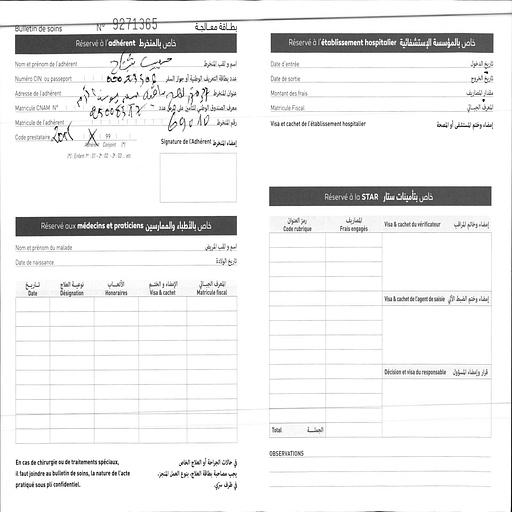 Bulletin de soins N° 9271365 بطاقة معالجة
Réservé à l'adhérent خاص بالمنخرط
Nom et prénom de l'adhérent اسم و لقب المنخرط
Numéro CIN ou passeport عدد بطاقة التعريف الوطنية أو جواز السفر
Adresse de l'adhérent عنوان المنخرط
Matricule CNAM N° معرف الصندوق الوطني للتأمين على المرض عدد
Matricule de l'adhérent 69010 رقم المنخرط
Code prestataire X 99
Adhérent Conjoint (*)
(*) : Enfant 1er : 01 - 2e : 02 - 3e : 03 ... etc
Signature de l'Adhérent إمضاء المنخرط
Réservé aux médecins et praticiens خاص بالأطباء والممارسين
Nom et prénom du malade اسم و لقب المريض
Date de naissance تاريخ الولادة
تاريخ نوعية العلاج الأتعاب الإمضاء و الختم المعرف الجبائي
Date Désignation Honoraires Visa & cachet Matricule fiscal
En cas de chirurgie ou de traitements spéciaux,
il faut joindre au bulletin de soins, la nature de l'acte
pratiqué sous pli confidentiel.
في حالات الجراحة أو العلاج الخاص
يجب مصاحبة بطاقة العلاج، بنوع العمل المنجز،
في ظرف سري.
Réservé à l'établissement hospitalier خاص بالمؤسسة الإستشفائية
Date d'entrée تاريخ الدخول
Date de sortie تاريخ الخروج
Montant des frais مقدار المصاريف
Matricule Fiscal المعرف الجبائي
Visa et cachet de l'établissement hospitalier إمضاء وختم المستشفى أو المصحة
Réservé à la STAR خاص بتأمينات ستار
رمز العنوان المصاريف
Code rubrique Frais engagés
Visa & cachet du vérificateur إمضاء وخاتم المراقب
Visa & cachet de l'agent de saisie إمضاء وختم الضبط الآلي
Décision et visa du responsable قرار وإمضاء المسؤول
Total الجملة
OBSERVATIONS